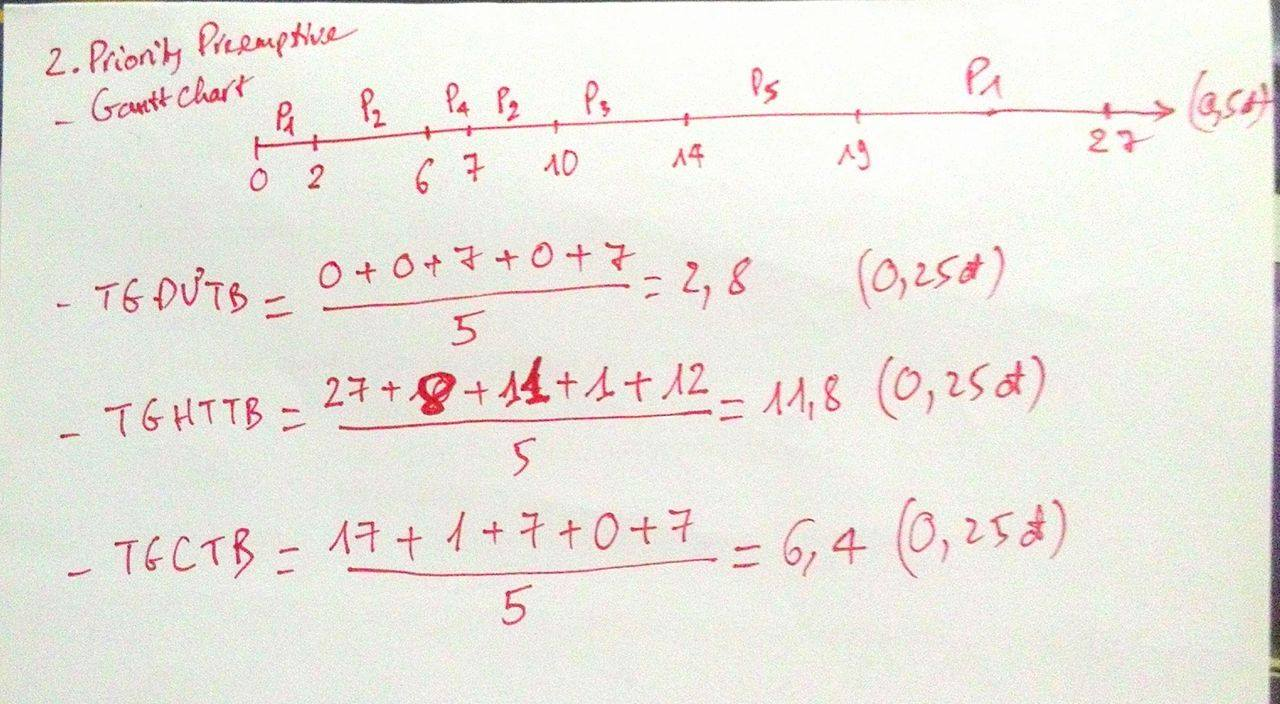 2. Priority Preemptive
- Gantt Chart
P1 P2 P4 P2 P3 P5 P1 (0,5đ)
0 2 6 7 10 14 19 27
- TGĐƯTB = 0 + 0 + 7 + 0 + 7 / 5 = 2,8 (0,25đ)
- TGHTTB = 27 + 8 + 11 + 1 + 12 / 5 = 11,8 (0,25đ)
- TGCTB = 17 + 1 + 7 + 0 + 7 / 5 = 6,4 (0,25đ)